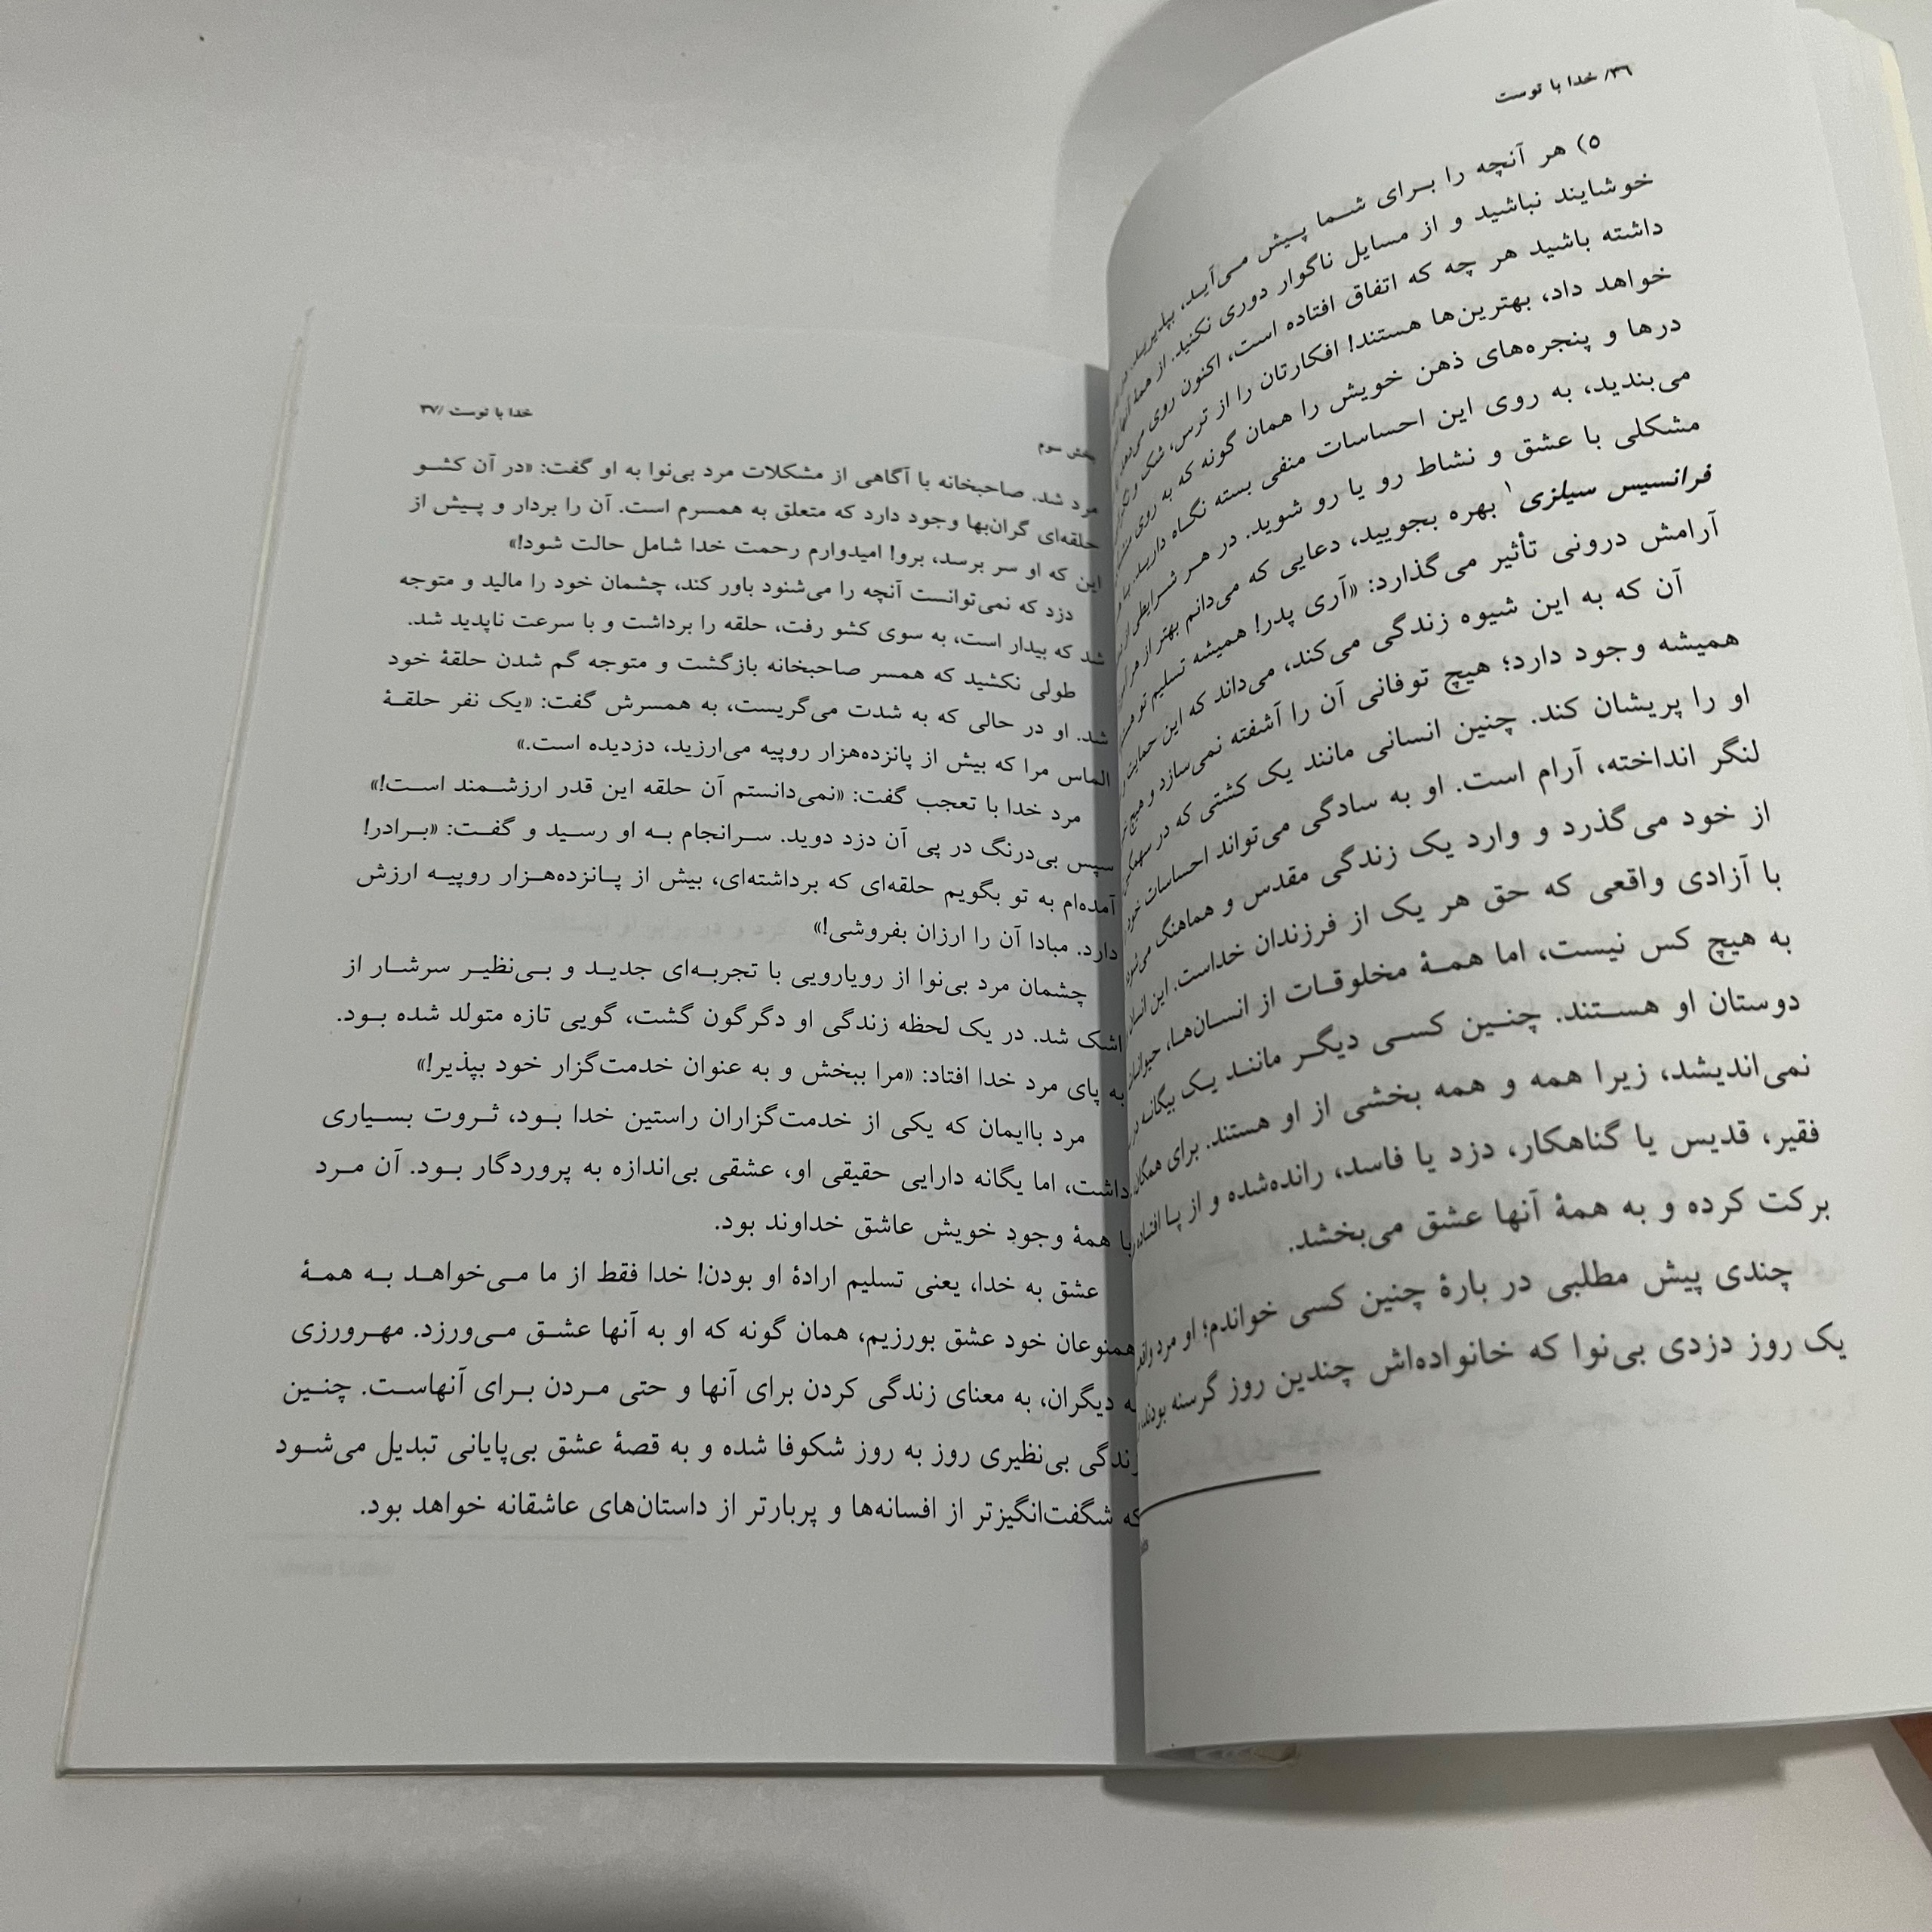 ۳۶/ خدا با توست
۵) هر آنچه را بـرای شـما پـیش مـی‌آیـد، بپذیریـد.
خوشایند نباشید و از مسایل ناگوار دوری نکنید. از همهٔ آنها
داشته باشید هر چه که اتفاق افتاده است، اکنون روی می‌دهد
خواهد داد، بهترین‌ها هستند! افکارتان را از ترس، شک و
درها و پنجره‌های ذهن خویش را همان گونه که به روی
می‌بندید، به روی این احساسات منفی بسته نگـاه داریـد.
مشکلی با عشق و نشاط رو یا رو شوید. در هـر شـرایطی از
فرانسیس سیلزی۱ بهره بجویید، دعایی که می‌دانم بهتر از هر
آرامش درونی تأثیر می‌گذارد: «آری پدر! همیشه تسلیم تو
آن که به این شیوه زندگی می‌کند، می‌داند که این حمایت
همیشه وجود دارد؛ هیچ توفانی آن را آشفته نمی‌سازد و هیچ
او را پریشان کند. چنین انسانی مانند یک کشتی که در
لنگر انداخته، آرام است. او به سادگی می‌تواند احساسات خود
از خود می‌گذرد و وارد یک زندگی مقدس و هماهنگ می‌شود
با آزادی واقعی که حق هر یک از فرزندان خداست. این انسان
به هیچ کس نیست، اما همـهٔ مخلوقـات از انسـان‌هـا، حیوانات
دوستان او هسـتند. چنـین کسـی دیگـر ماننـد یـک بیگانـه
نمی‌اندیشد، زیرا همه و همه بخشی از او هستند. برای همگان
فقیر، قدیس یا گناهکار، دزد یا فاسد، رانده‌شده و از پـا افتـاده
برکت کرده و به همهٔ آنها عشق می‌بخشد.
چندی پیش مطلبی در بارهٔ چنین کسی خواندم؛ او مرد
یک روز دزدی بی‌نوا که خانواده‌اش چندین روز گرسنه بودند،
بخش سوم
خدا با توست /۳۷
مرد شد. صاحبخانه با آگاهی از مشکلات مرد بی‌نوا به او گفت: «در آن کشـو
حلقه‌ای گران‌بها وجود دارد که متعلق به همسرم است. آن را بردار و پـیش از
این که او سر برسد، برو! امیدوارم رحمت خدا شامل حالت شود!»
دزد که نمی‌توانست آنچه را می‌شنود باور کند، چشمان خود را مالید و متوجه
شد که بیدار است، به سوی کشو رفت، حلقه را برداشت و با سرعت ناپدید شد.
طولی نکشید که همسر صاحبخانه بازگشت و متوجه گم شدن حلقهٔ خود
شد. او در حالی که به شدت می‌گریست، به همسرش گفت: «یک نفر حلقـهٔ
الماس مرا که بیش از پانزده‌هزار روپیه می‌ارزید، دزدیده است.»
مرد خدا با تعجب گفت: «نمی‌دانستم آن حلقه این قدر ارزشـمند اسـت!»
سپس بی‌درنگ در پی آن دزد دوید. سـرانجام بـه او رسـید و گفـت: «بـرادر!
آمده‌ام به تو بگویم حلقه‌ای که برداشته‌ای، بیش از پـانزده‌هـزار روپیـه ارزش
دارد. مبادا آن را ارزان بفروشی!»
چشمان مرد بی‌نوا از رویارویی با تجربـه‌ای جدیـد و بـی‌نظیـر سرشـار از
اشک شد. در یک لحظه زندگی او دگرگون گشت، گویی تازه متولد شده بـود.
به پای مرد خدا افتاد: «مرا ببخش و به عنوان خدمت‌گزار خود بپذیر!»
مرد باایمان که یکی از خدمت‌گزاران راستین خدا بـود، ثـروت بسـیاری
داشت، اما یگانه دارایی حقیقی او، عشقی بی‌اندازه به پروردگار بـود. آن مـرد
با همهٔ وجودِ خویش عاشق خداوند بود.
عشق به خدا، یعنی تسلیم ارادهٔ او بودن! خدا فقط از ما مـی‌خواهـد بـه همـهٔ
همنوعان خود عشق بورزیم، همان گونه که او به آنها عشـق مـی‌ورزد. مهـرورزی
به دیگران، به معنای زندگی کردن برای آنها و حتی مـردن بـرای آنهاسـت. چنـین
زندگی بی‌نظیری روز به روز شکوفا شده و به قصهٔ عشق بی‌پایانی تبدیل می‌شـود
که شگفت‌انگیزتر از افسانه‌ها و پربارتر از داستان‌های عاشقانه خواهد بود.